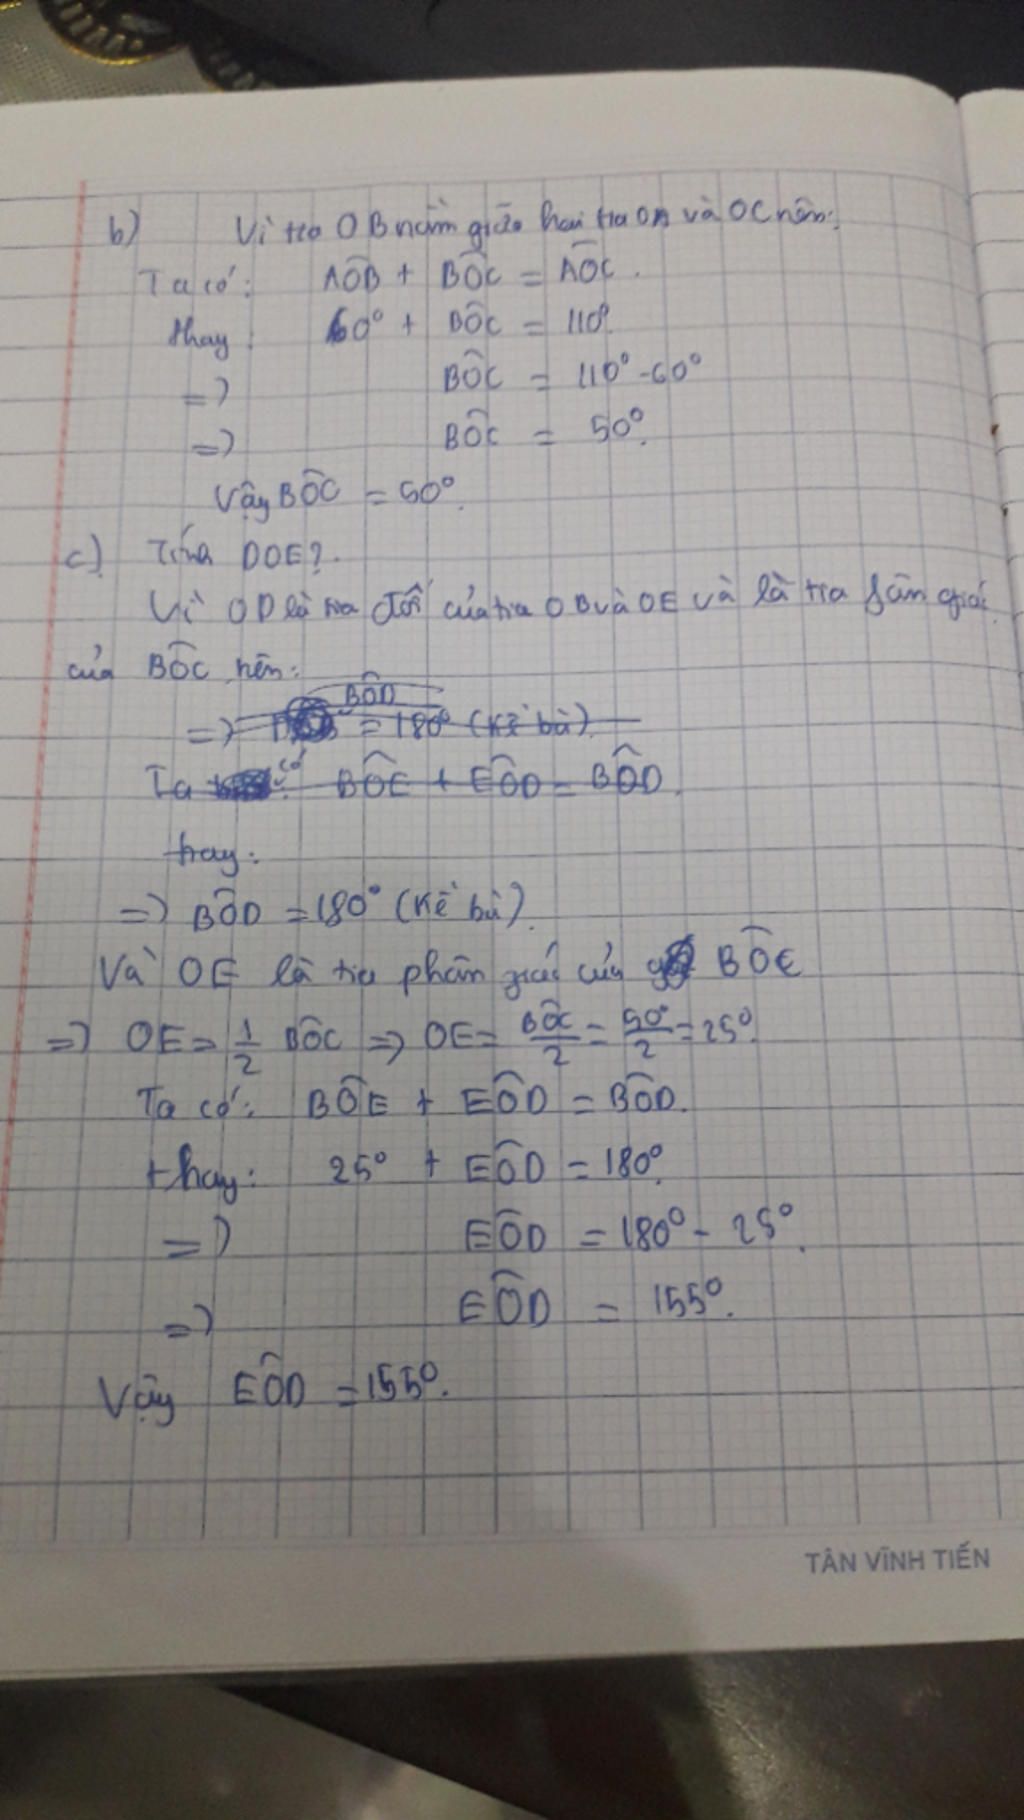 b) Vì tia OB nằm giữa hai tia OA và OC nên:
Ta có: AÔB + BÔC = AÔC.
thay: 60° + BÔC = 110°
=> BÔC = 110° - 60°
=> BÔC = 50°.
Vậy BÔC = 50°.
c) Tính DOE?.
Vì OD là tia đối của tia OB và OE và là tia fân giác
của BÔC nên:
BÔD
=> = 180° (Kề bù).
Ta có: BÔE + EÔD = BÔD.
thay:
=> BÔD = 180° (Kề bù).
Và OE là tia phân giác của BÔE
=> OE = 1/2 BÔC => OE = BÔC/2 = 50°/2 = 25°.
Ta có: BÔE + EÔD = BÔD.
thay: 25° + EÔD = 180°.
=> EÔD = 180° - 25°.
=> EÔD = 155°.
Vậy EÔD = 155°.
TÂN VĨNH TIẾN